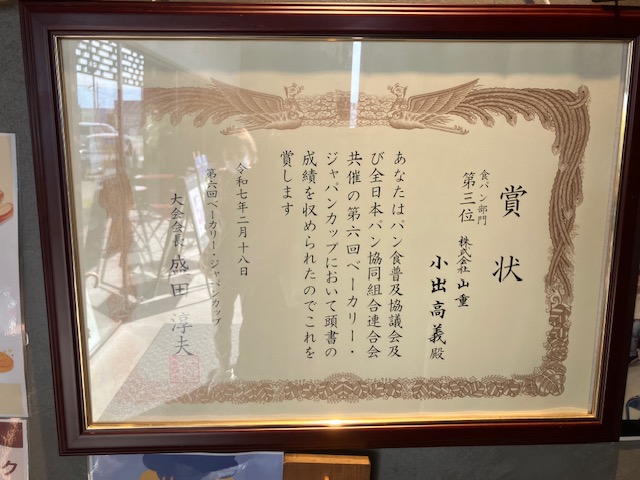 賞状
食パン部門
第三位
株式会社山重
小出高義殿
あなたはパン食普及協議会及
び全日本パン協同組合連合会
共催の第六回ベーカリー・
ジャパンカップにおいて頭書の
成績を収められたのでこれを
賞します
令和七年二月十八日
第六回ベーカリー・ジャパンカップ
大会会長 盛田淳夫
ク